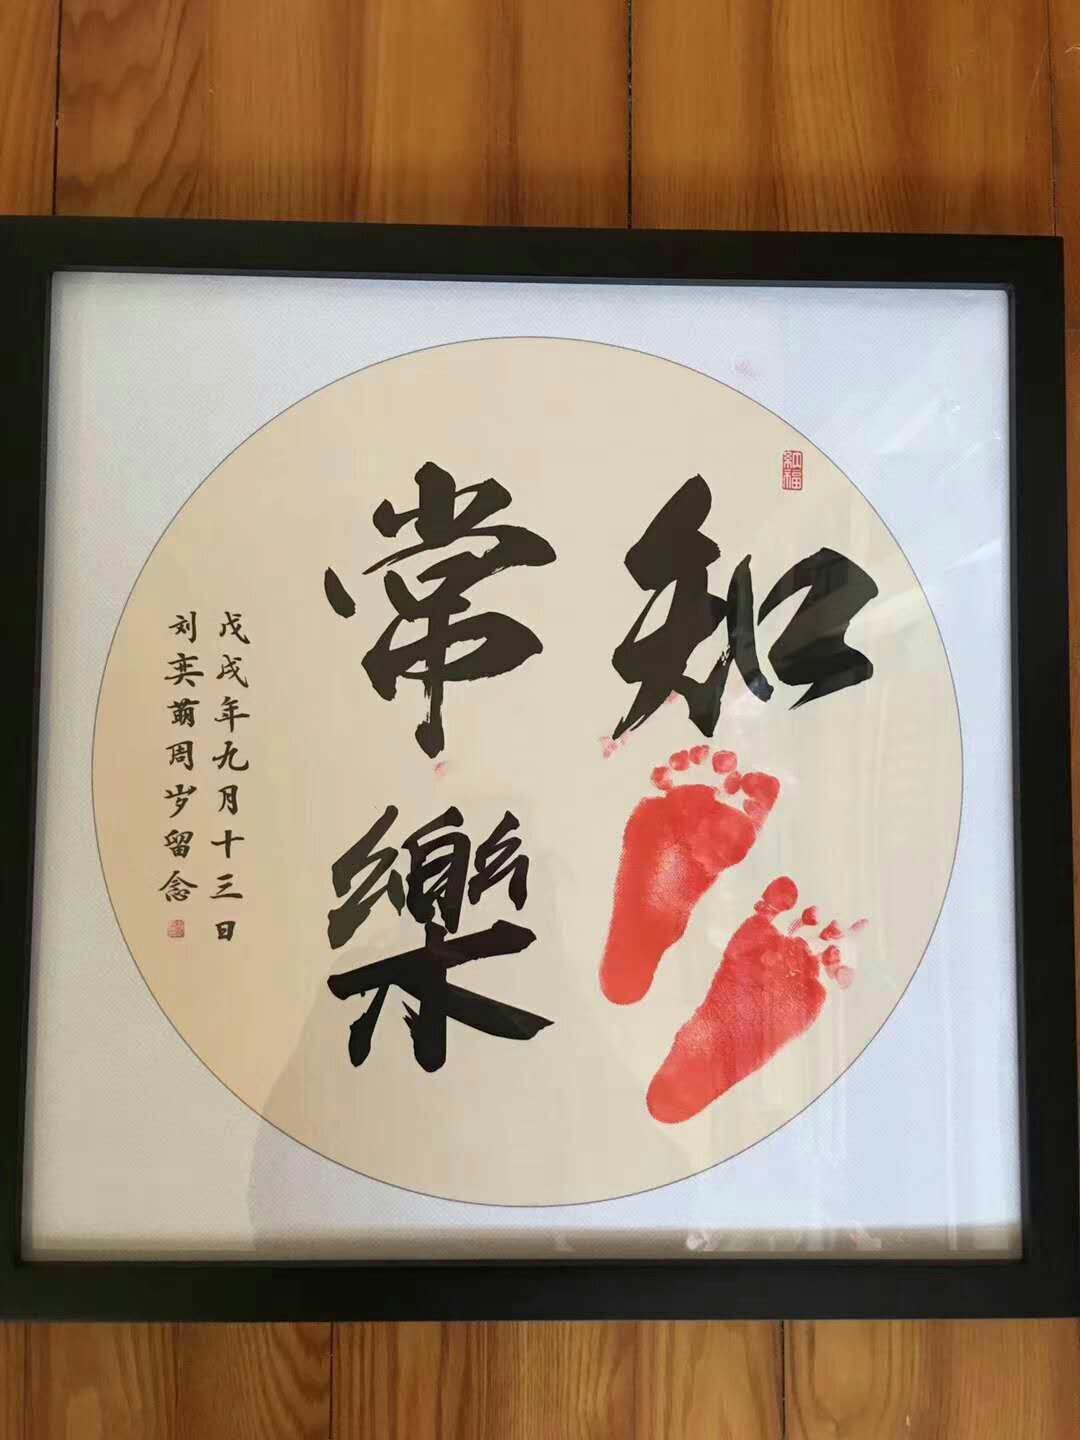 納福
知
常樂
戊戌年九月十三日
刘奕萌周岁留念